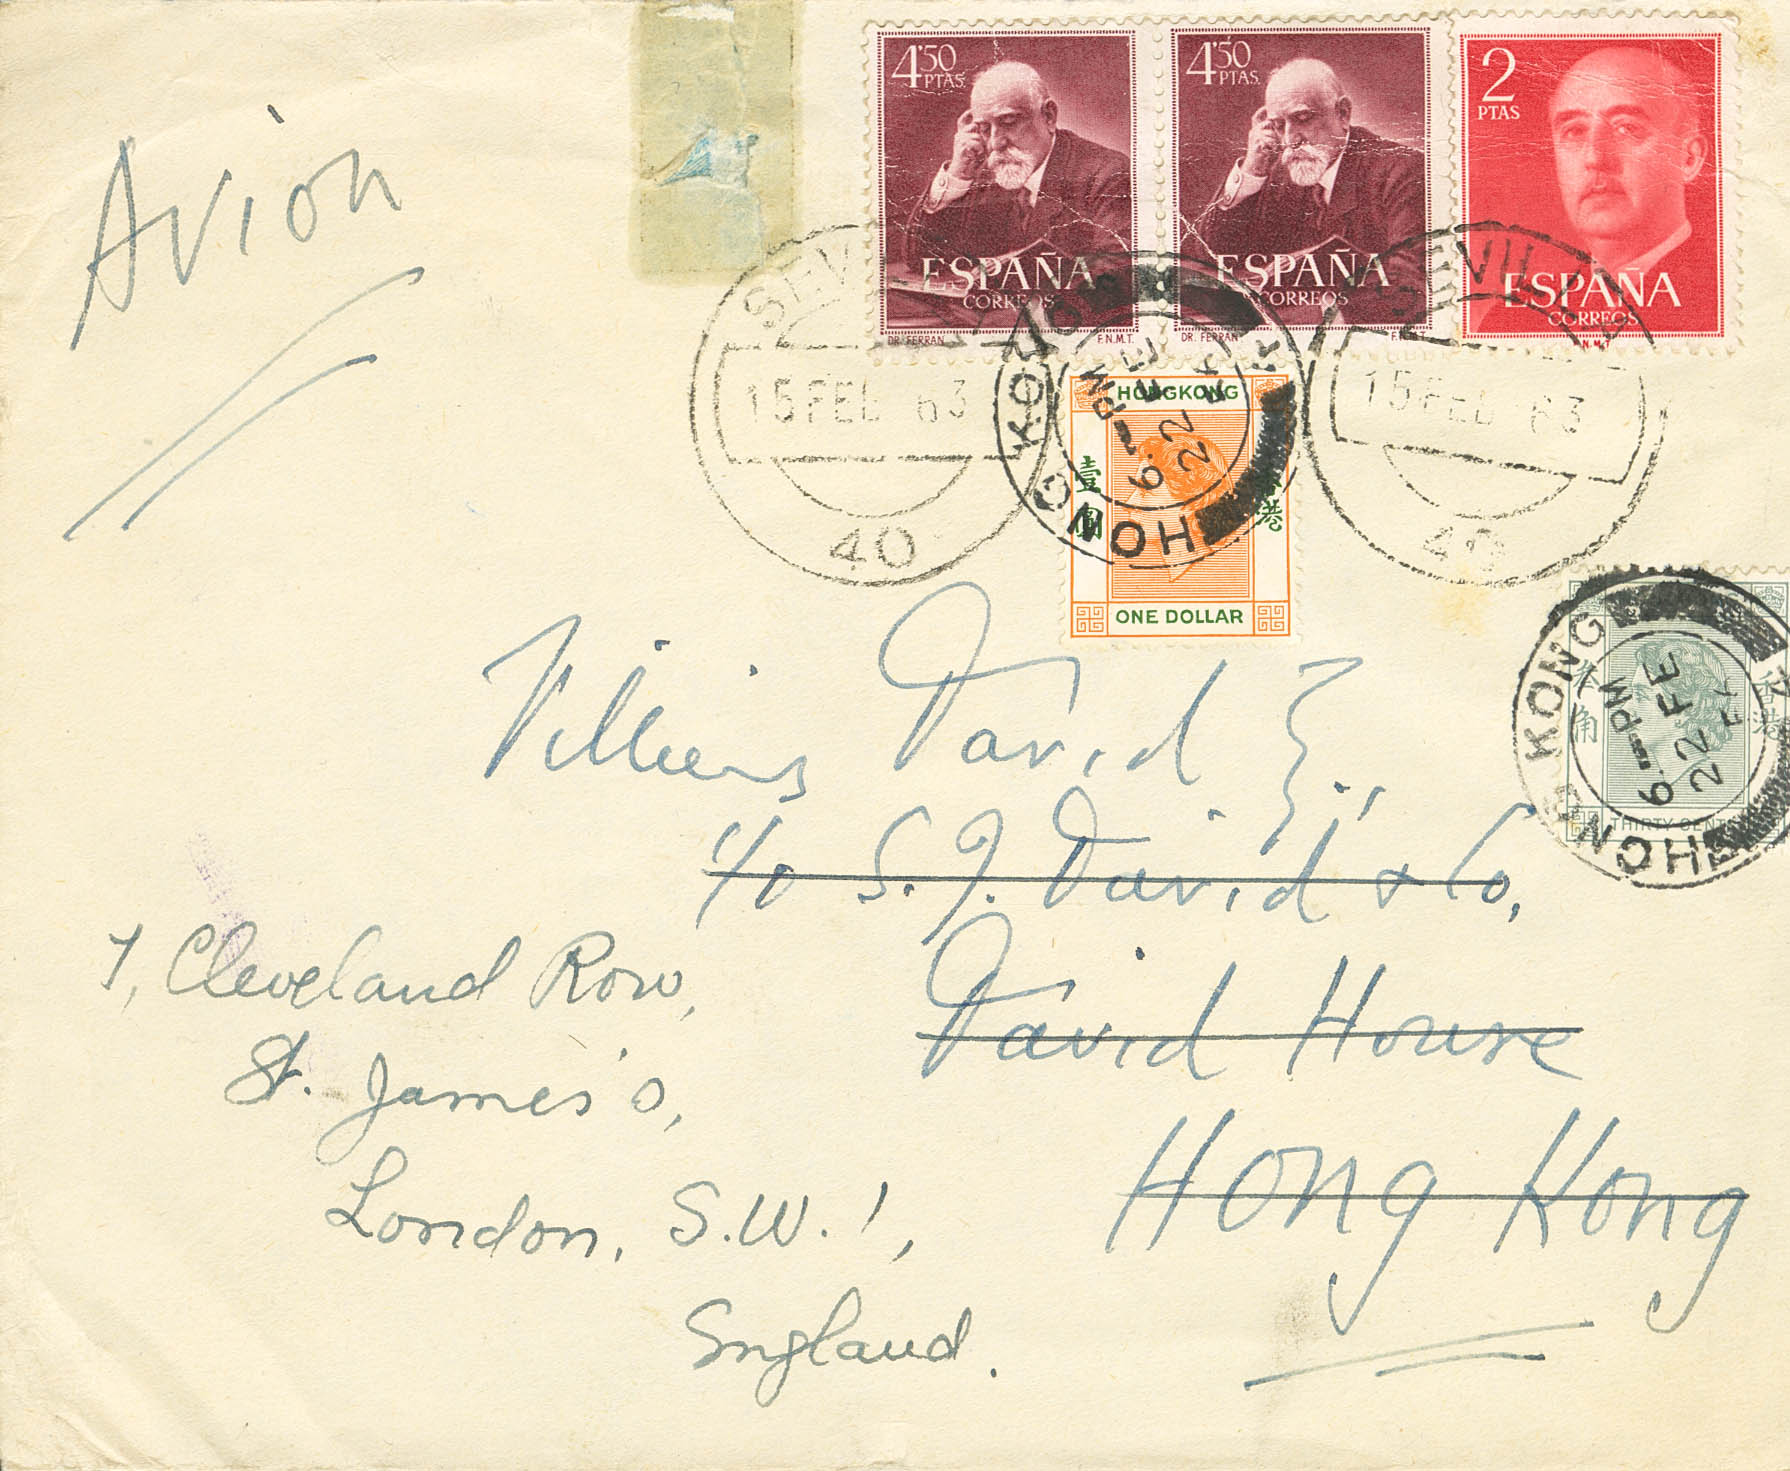 Avion
4'50
PTAS.
ESPAÑA
CORREOS
DR. FERRAN F.N.M.T.
4'50
PTAS.
ESPAÑA
CORREOS
DR. FERRAN
2
PTAS
ESPAÑA
CORREOS
F.N.M.T
SEVILLA
15 FEB 63
40
SEVILLA
15 FEB 63
40
HONG KONG
6 - PM
22 FE
HONGKONG
壹圓
香港
ONE DOLLAR
HONG KONG
6 - PM
22 FE
叁角
香港
THIRTY CENTS
Villiers David E.,
c/o S. J. David & Co,
David House
Hong Kong
7, Cleveland Row,
St. James's,
London, S.W.1,
England.